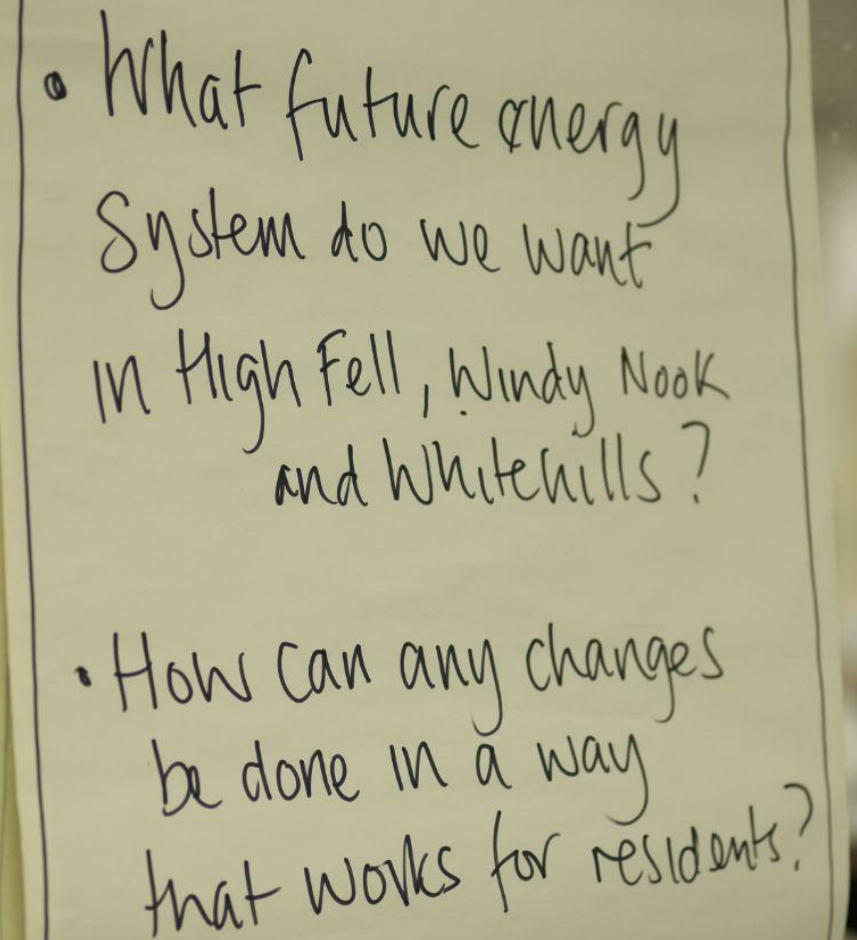 • What future energy
System do we want
in High Fell, Windy Nook
and Whitehills?
• How can any changes
be done in a way
that works for residents?